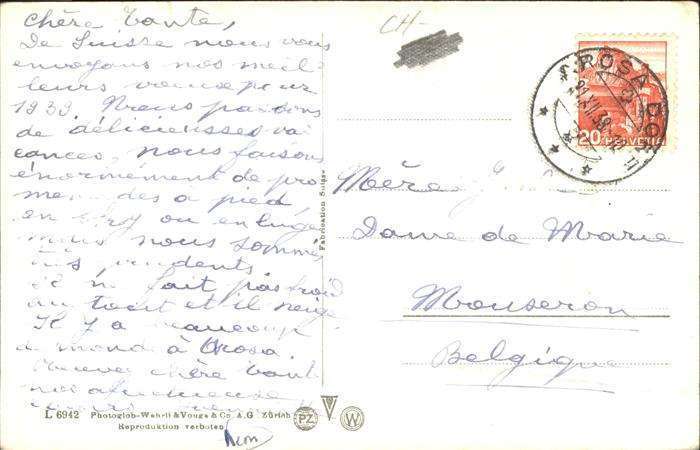 Chère Tante,
De Suisse nous vous
envoyons nos meil-
leurs voeux pour
1939. Nous passons
de délicieuses va
cances, nous faisons
énormément de pro
menades à pied
en ou en luge
mais nous sommes
très prudents
Il ne fait pas froid
du tout et il neige
Il y a beaucoup
de monde à Arosa.
chère Tante
nos affectueuse
CH-
AROSA DORF
31.XII.38
20 HELVETIA
Mère
Dame de Marie
Mouseron
Belgique
Fabrication Suisse
L 6942 Photoglob-Wehrli & Vouga & Co. A.G. Zürich
Reproduktion verboten
PZ
W